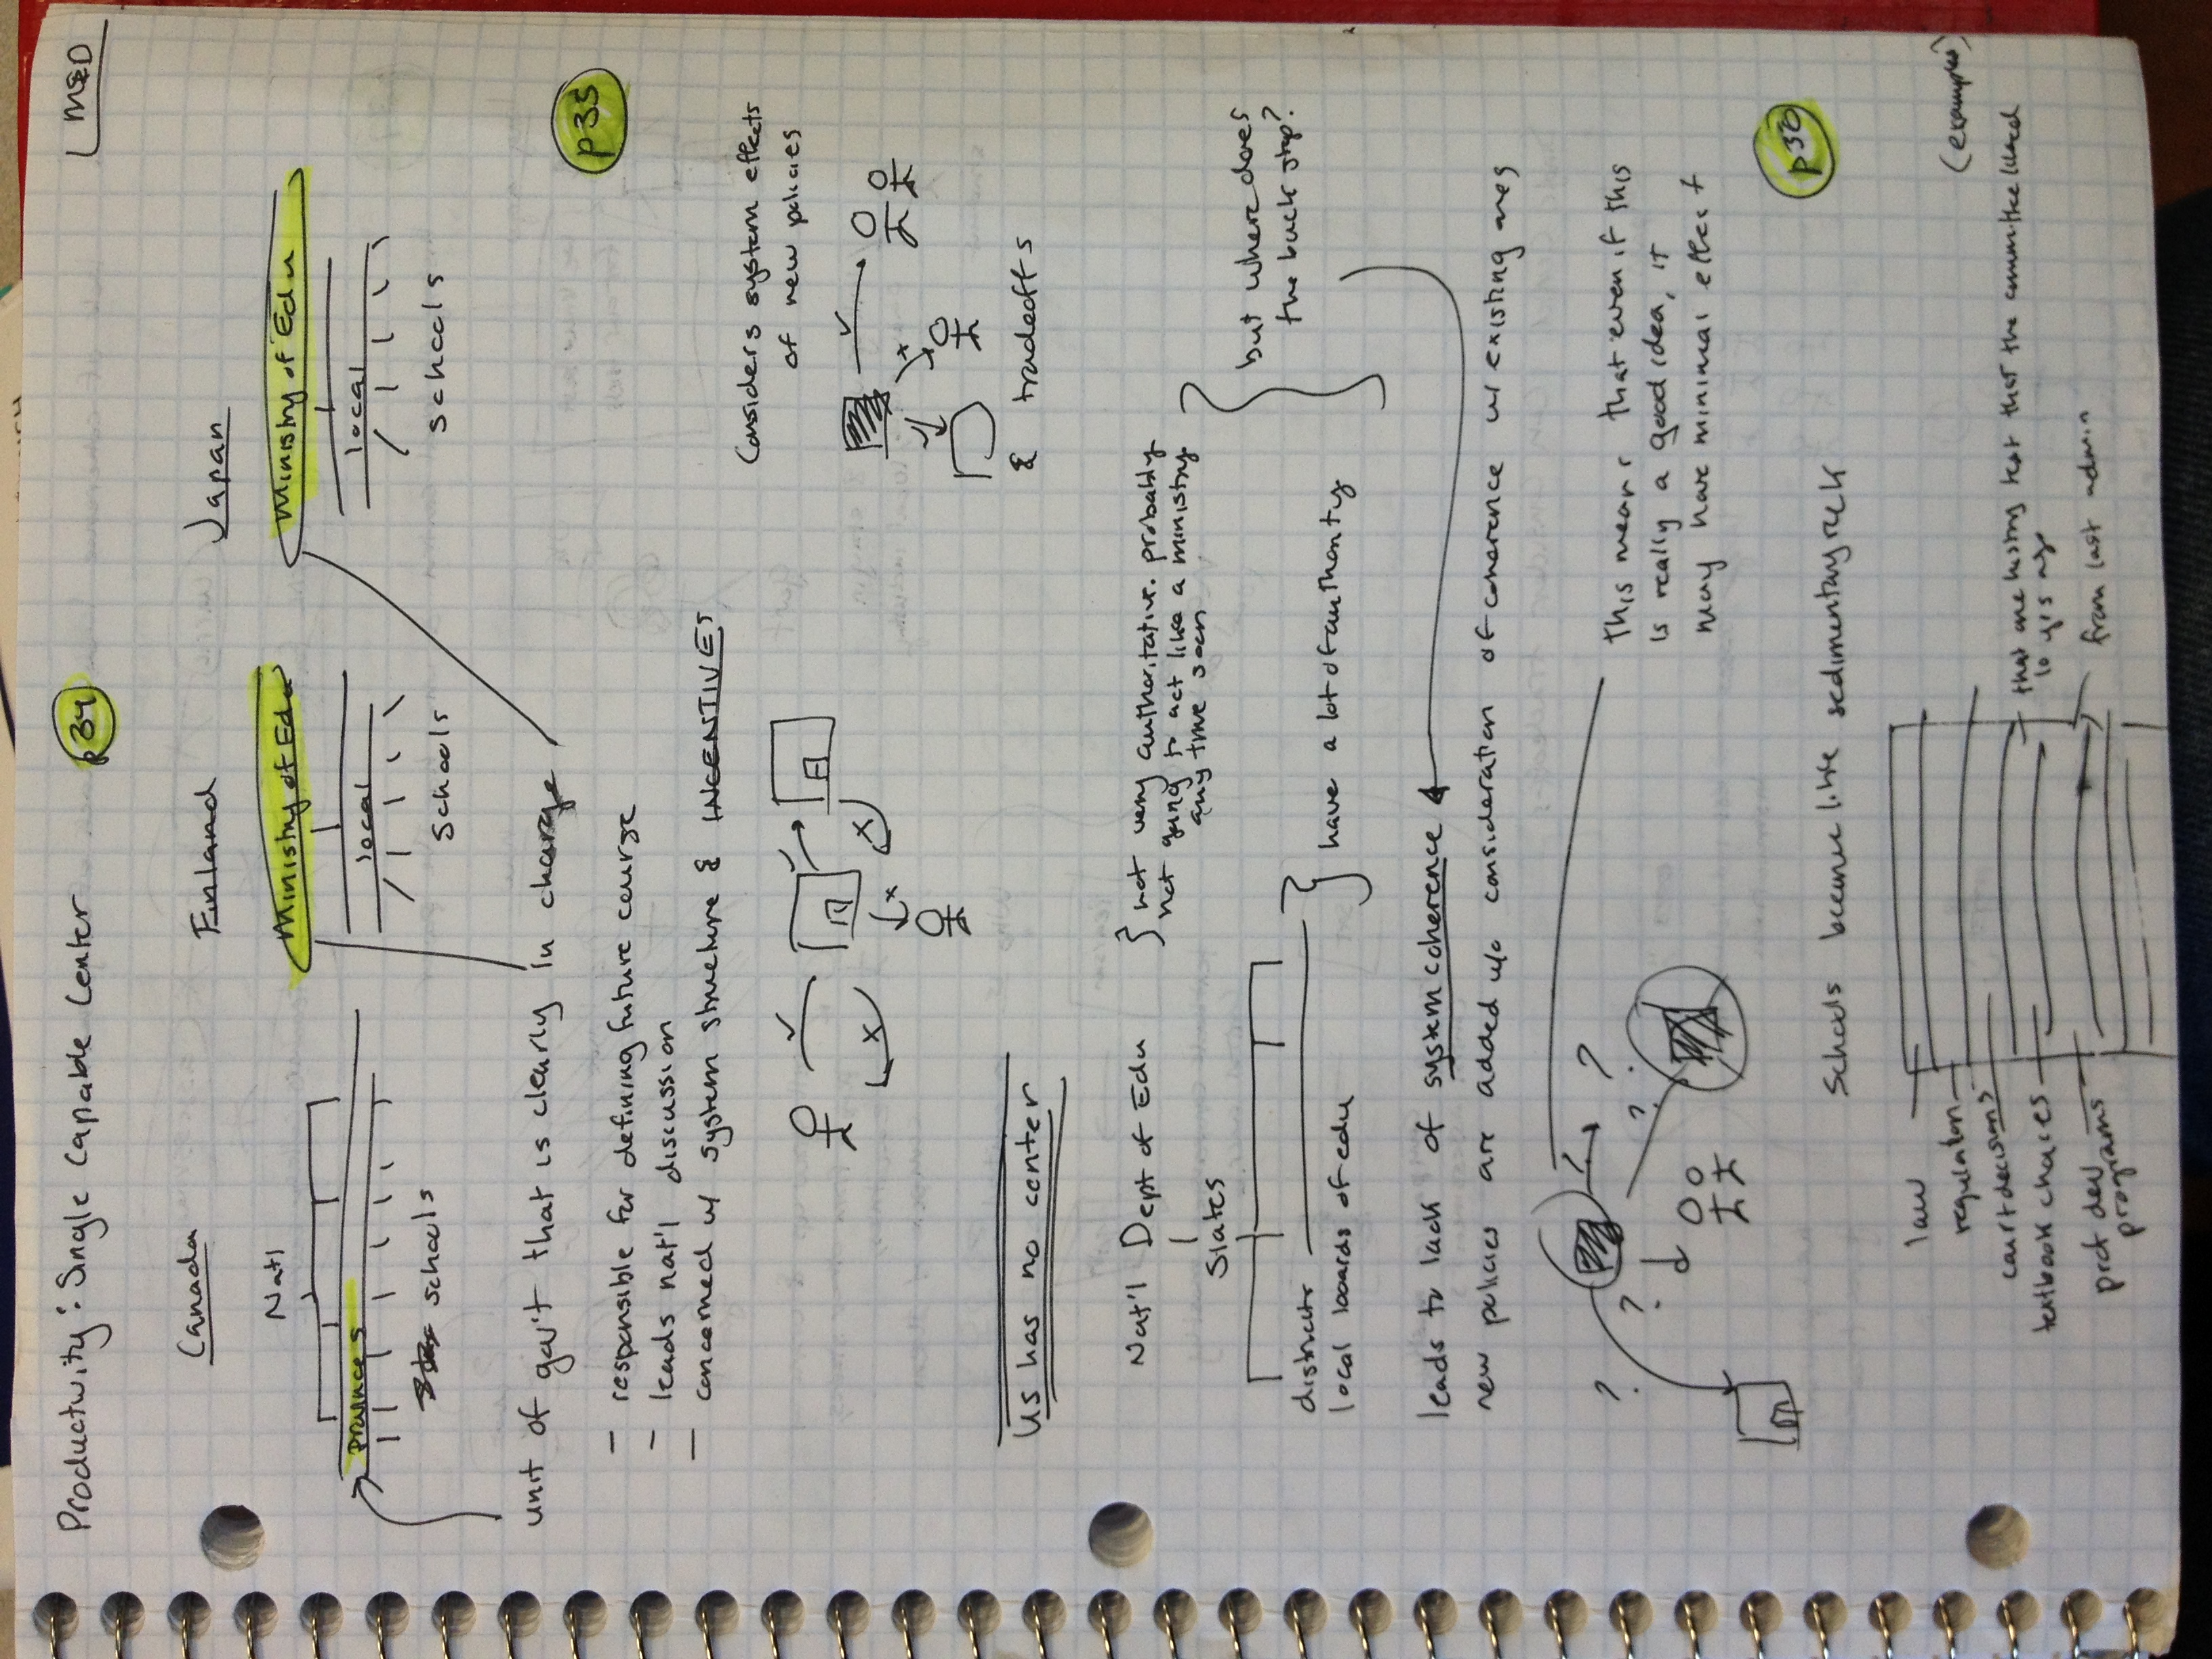 Productivity: Single Capable Center
p34
M&D
Canada
Finland
Japan
Nat'l
Ministry of Edu
Ministry of Edu
Provinces
local
local
schools
Schools
schools
unit of gov't that is clearly in charge
p35
– responsible for defining future course
– leads nat'l discussion
– concerned w/ system structure & INCENTIVES
Considers system effects
of new policies
& tradeoffs
US has no center
Nat'l Dept of Edu
} not very authoritative. probably
not going to act like a ministry
any time soon
States
but where does
the buck stop?
districts
local boards of edu
} have a lot of authority
leads to lack of system coherence
new policies are added w/o consideration of coherence w/ existing ones
?
?
?
?
?
this means that even if this
is really a good idea, it
may have minimal effect
p36
Schools become like sedimentary rock
law
regulation
court decisions
textbook choices
prof dev
programs
(examples)
that one history text that the committee liked
10 yrs ago
from last admin